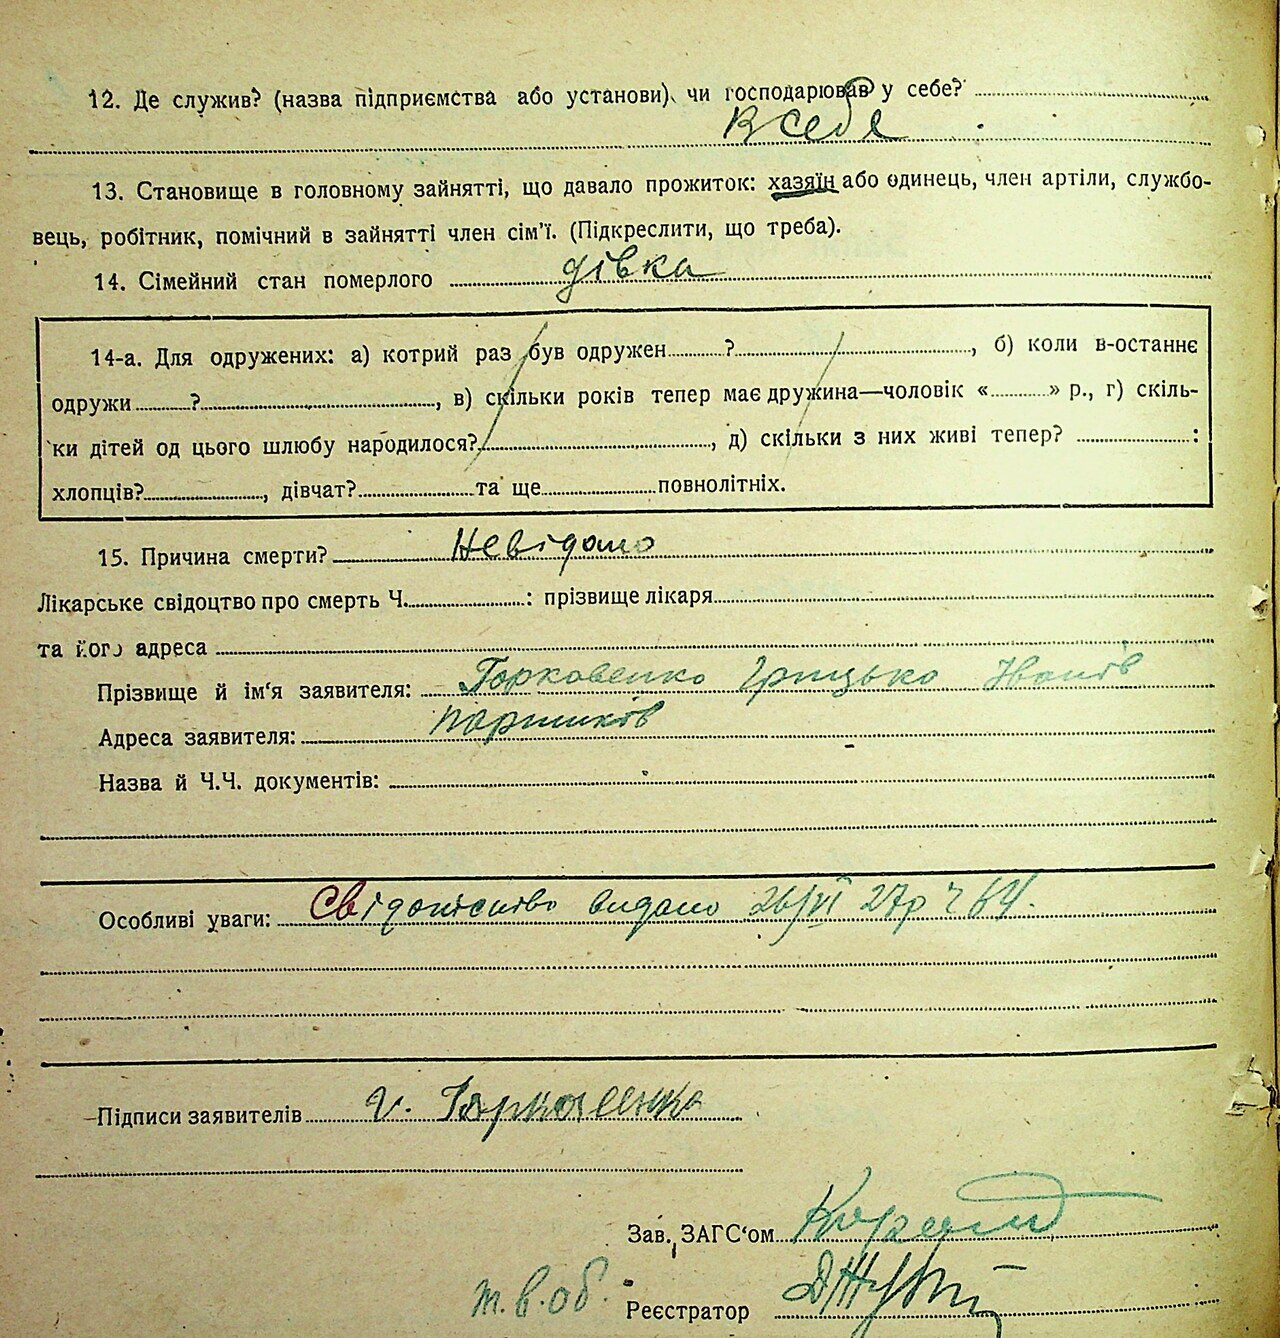 12. Де служив? (назва підприємства або установи), чи господарював у себе?
В себе
13. Становище в головному зайнятті, що давало прожиток: хазяїн або одинець, член артіли, службо-
вець, робітник, помічний в зайнятті член сім'ї. (Підкреслити, що треба).
14. Сімейний стан померлого дівка
14-а. Для одружених: а) котрий раз був одружен ? , б) коли в-останнє
одружи ? , в) скільки років тепер має дружина—чоловік « » р., г) скіль-
ки дітей од цього шлюбу народилося? , д) скільки з них живі тепер? :
хлопців? , дівчат? та ще повнолітніх.
15. Причина смерти? Невідомо
Лікарське свідоцтво про смерть Ч. : прізвище лікаря
та його адреса
Прізвище й ім'я заявителя: Горковенко Грицько Іванів
Адреса заявителя:
Назва й Ч.Ч. документів:
Особливі уваги: видано 26/VI 27р ч 64.
Підписи заявителів Г. Горковенко
Зав. ЗАГС'ом
т.в.об. Реєстратор